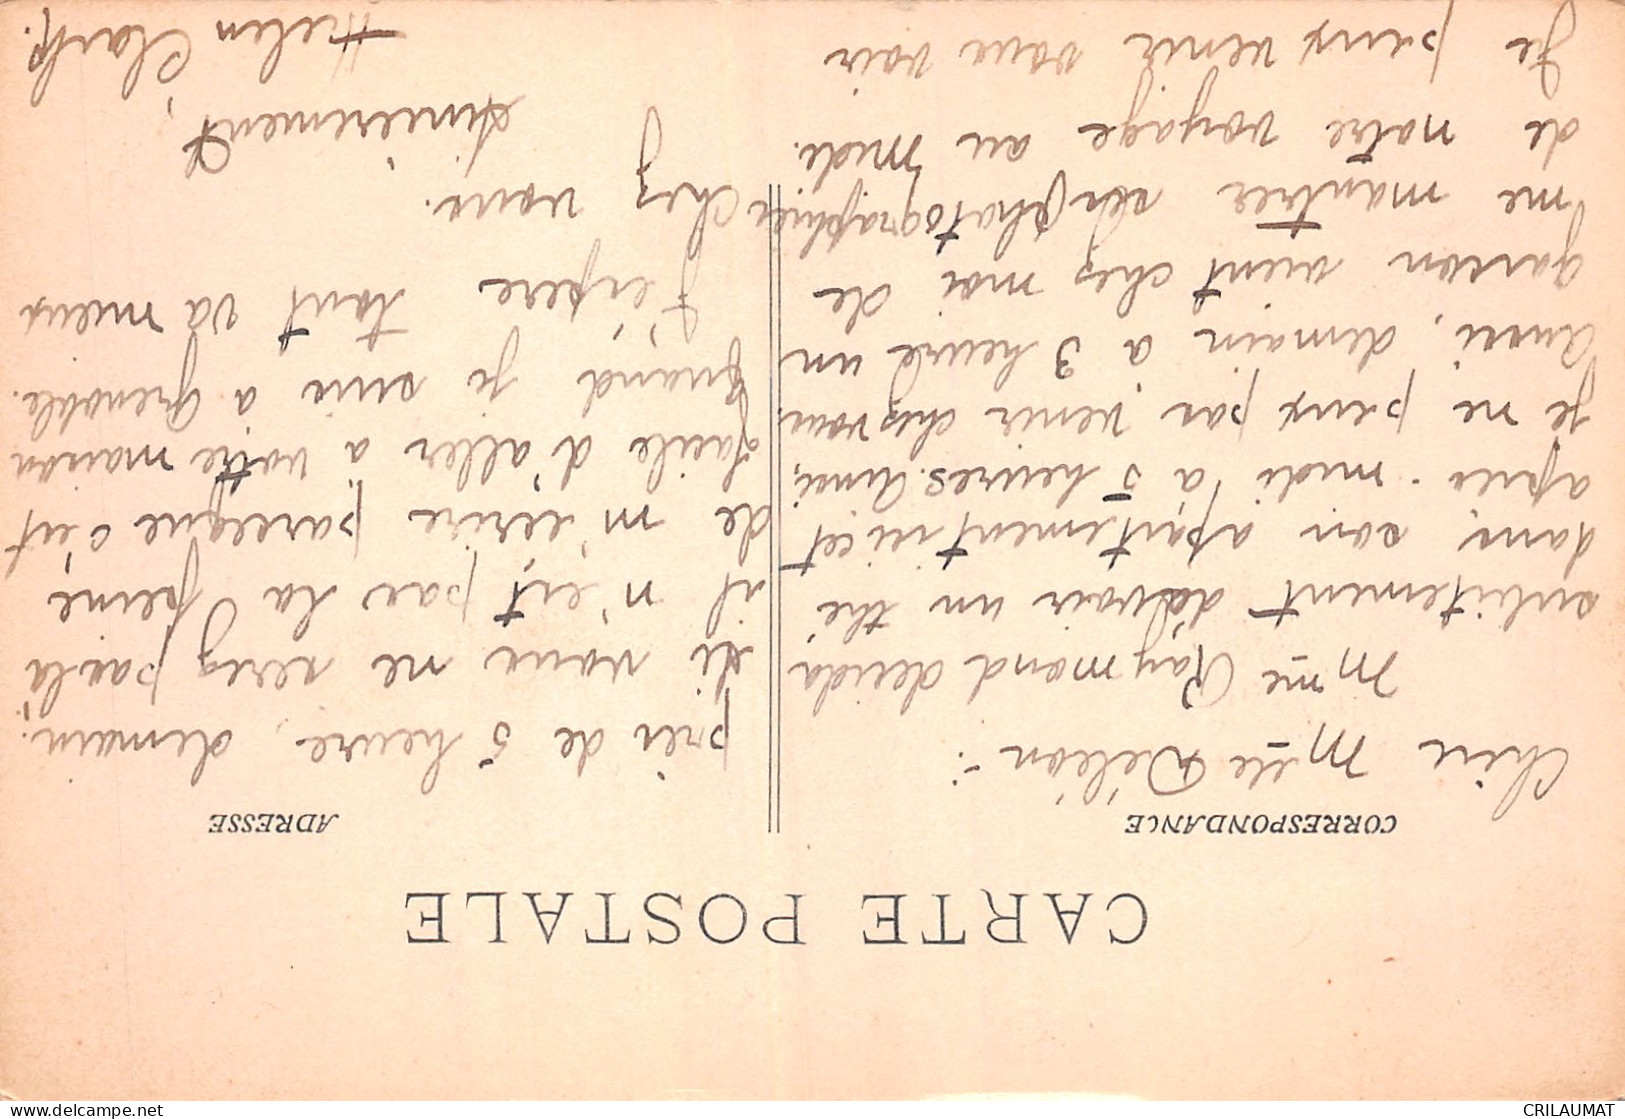 CARTE POSTALE
CORRESPONDANCE
Chère Mlle Déléon -:
Mme Raymond decida
subitement d'avoir un thé,
dans son apartement ici cet
après-midi à 5 heures. Ainsi,
je ne peux pas venir chez vous.
Aussi, demain à 3 heure un
garson vient chez moi de
me montrer ses photographies
de notre voyage au Midi.
Je peux venir vous voir
ADRESSE
près de 5 heure, demain.
si vous ne serez pas là
il n'est pas la peine,
de m'écrire parceque c'est
facile d'aller à votre maison
quand je suis à Grenoble.
J'éspere tout va mieux
chez vous.
Sincèrement,
Helen Clark.
www.delcampe.net
CRILAUMAT